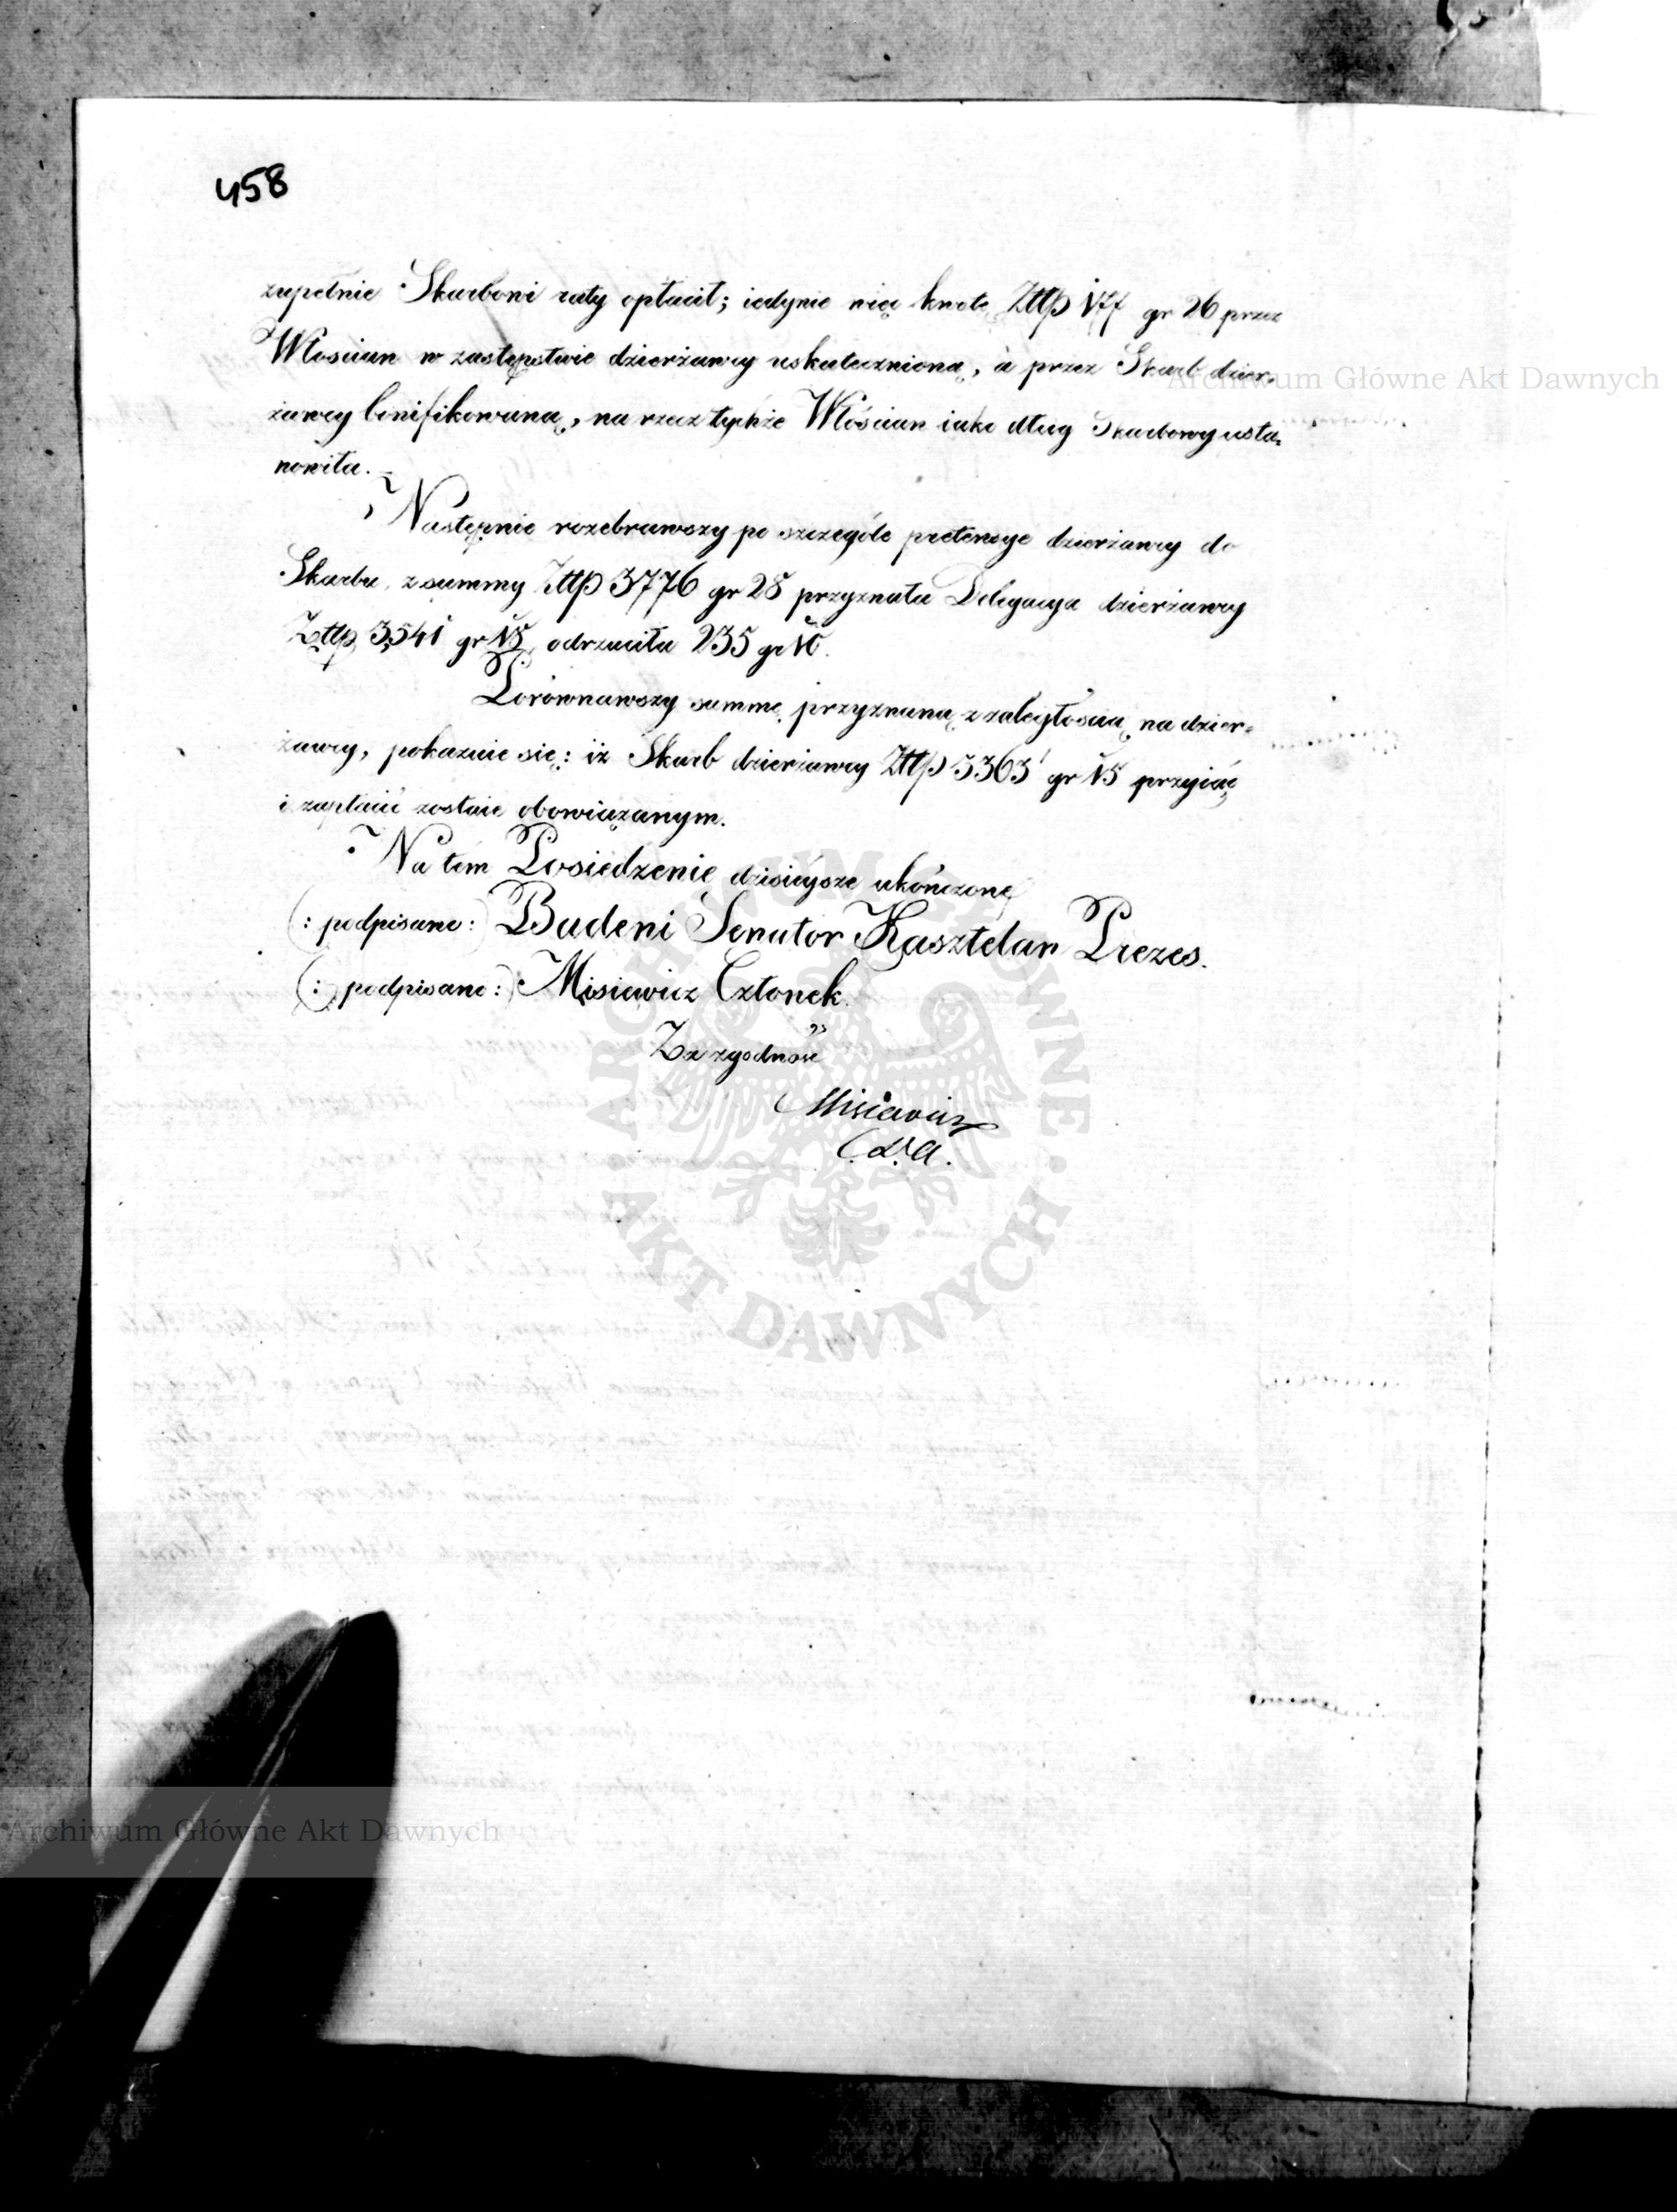 458
zupełnie Skarbowi raty opłacił; iedynie więc kwotę Złtp 177 gr 26 przez
Włościan w zastępstwie dzierżawcy uskutecznioną, a przez Skarb dzier=
żawcy bonifikowaną, na rzecz tychże Włościan iako dług Skarbowy usta=
nowiła.
Następnie rozebrawszy po szczególe pretensye dzierżawcy do
Skarbu, z summy Złtp 3776 gr 28 przyznała Delegacya dzierżawcy
Złtp 3,541 gr 15 odrzuciła 235 gr
Porównawszy summę przyznaną z zaległością na dzier=
żawcy, pokazuie się: iż Skarb dzierżawcy Złtp 3363 gr 15 przyiąć
i zapłacić zostaie obowiązanym.
Na tém Posiedzenie dzisieysze ukończone
(: podpisano:) Badeni Senator Kasztelan Prezes.
(: podpisano:) Misiewicz Członek.
Za zgodność
Misiewicz
Archiwum Główne Akt Dawnych
ARCHIWUM GŁÓWNE
AKT DAWNYCH
Archiwum Główne Akt Dawnych